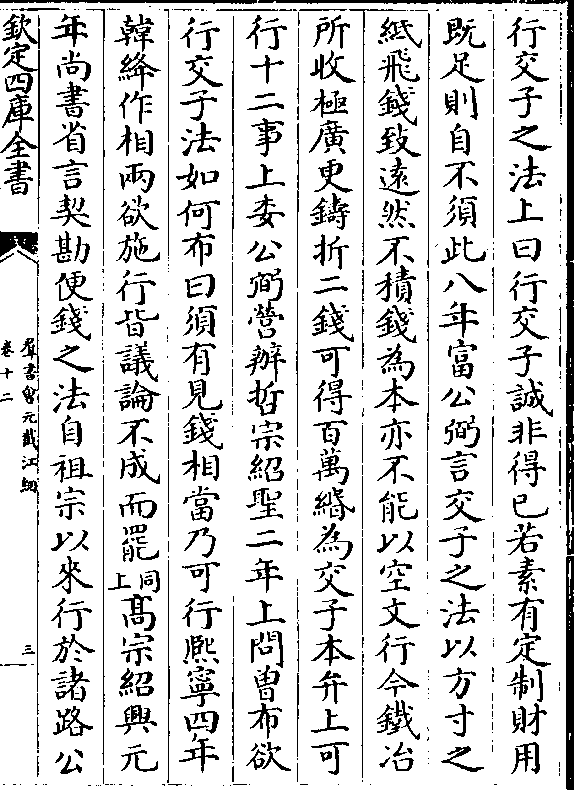 行交子之法上曰行交子誠非得已若素有定制財用
既足則自不須此八年富公弼言交子之法以方寸之
紙飛錢致遠然不積錢為本亦不能以空文行今鐵冶
所收極廣更鑄折二錢可得百萬緡為交子本弁上可
行十二事上委公弼營辦哲宗紹聖二年上問曽布欲
行交子法如何布曰須有見錢相當乃可行熈寧四年
韓絳作相兩欲施行皆議論不成而罷同上髙宗紹興元
年尚書省言契勘便錢之法自祖宗以來行於諸路公
欽定四庫全書
羣書㑹元截江網
卷十二
三